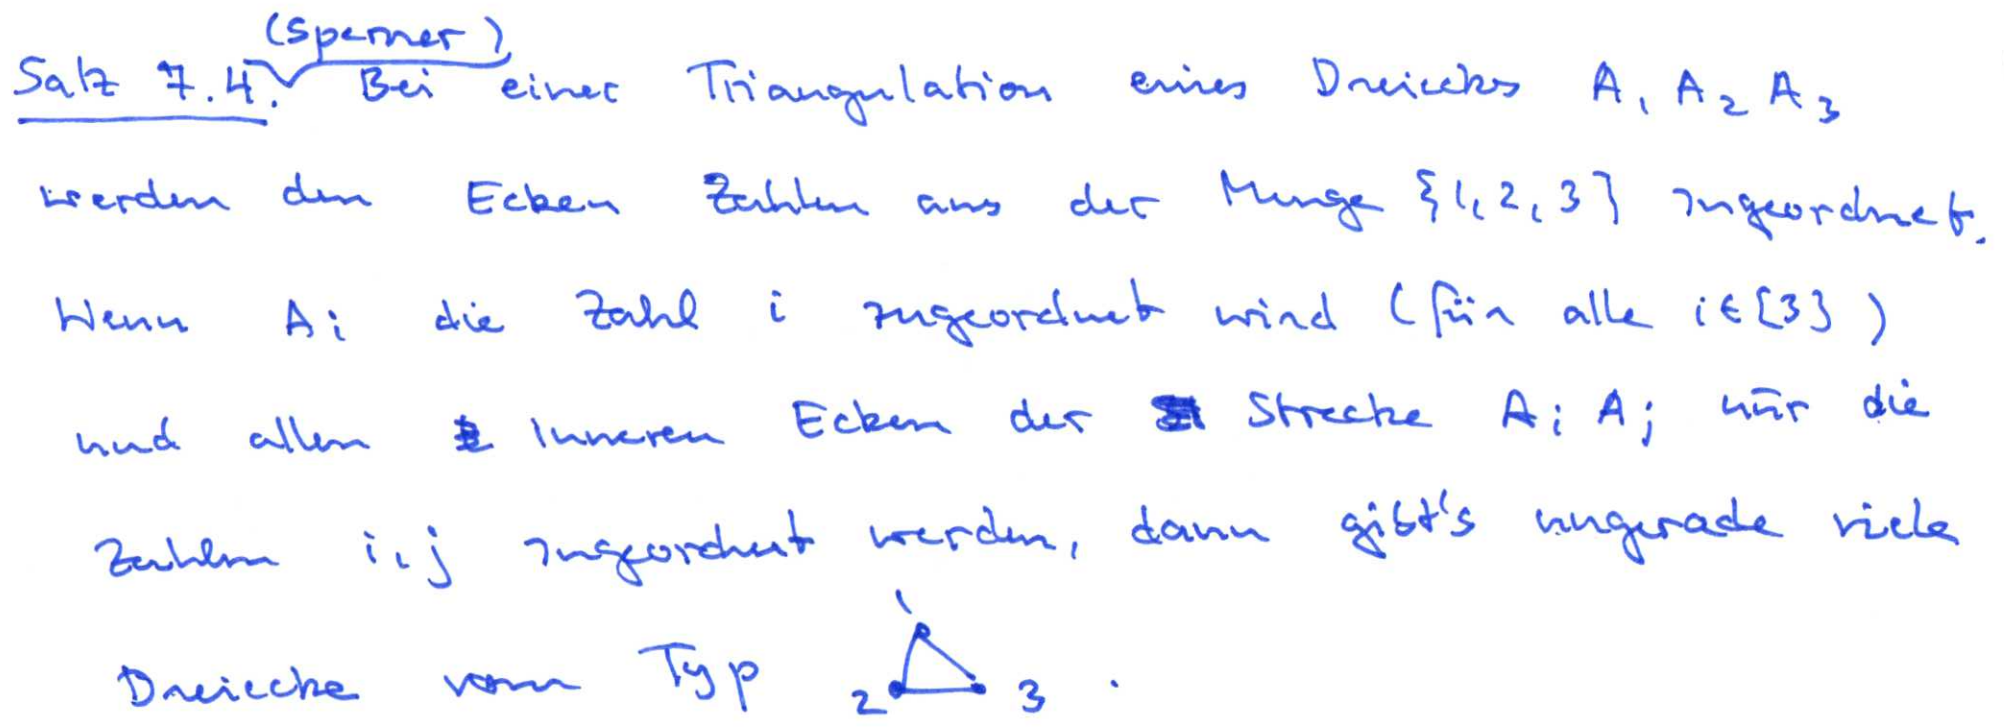 Satz 7.4. (Sperner) Bei einer Triangulation eines Dreiecks A₁ A₂ A₃
werden den Ecken Zahlen aus der Menge {1, 2, 3} zugeordnet.
Wenn Aᵢ die Zahl i zugeordnet wird (für alle i ∈ [3])
und allen inneren Ecken der Strecke Aᵢ Aⱼ nur die
Zahlen i, j zugeordnet werden, dann gibt's ungerade viele
Dreiecke vom Typ 1 2 3 .